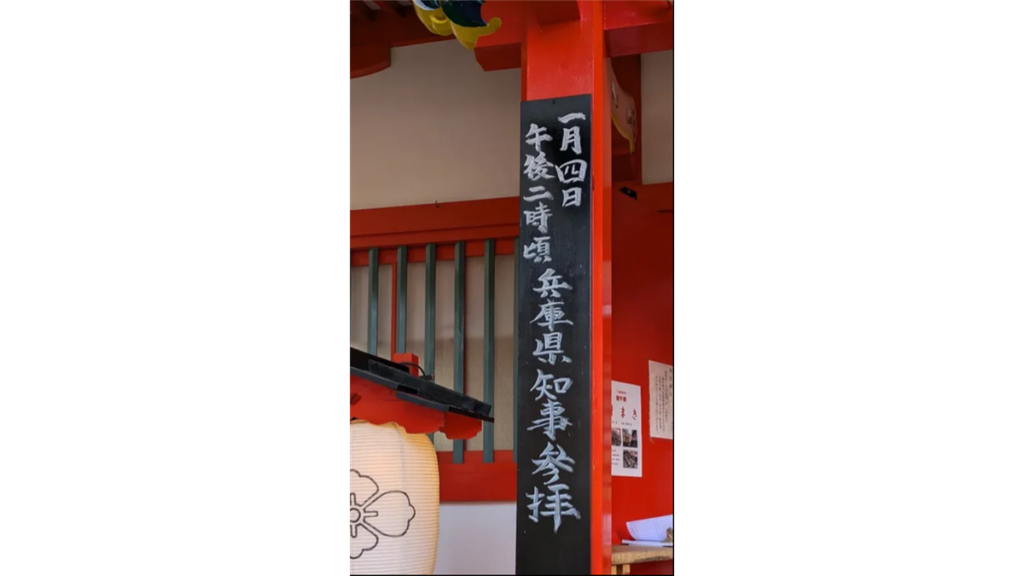 一月四日
午後二時頃
兵庫県知事參拝
まき